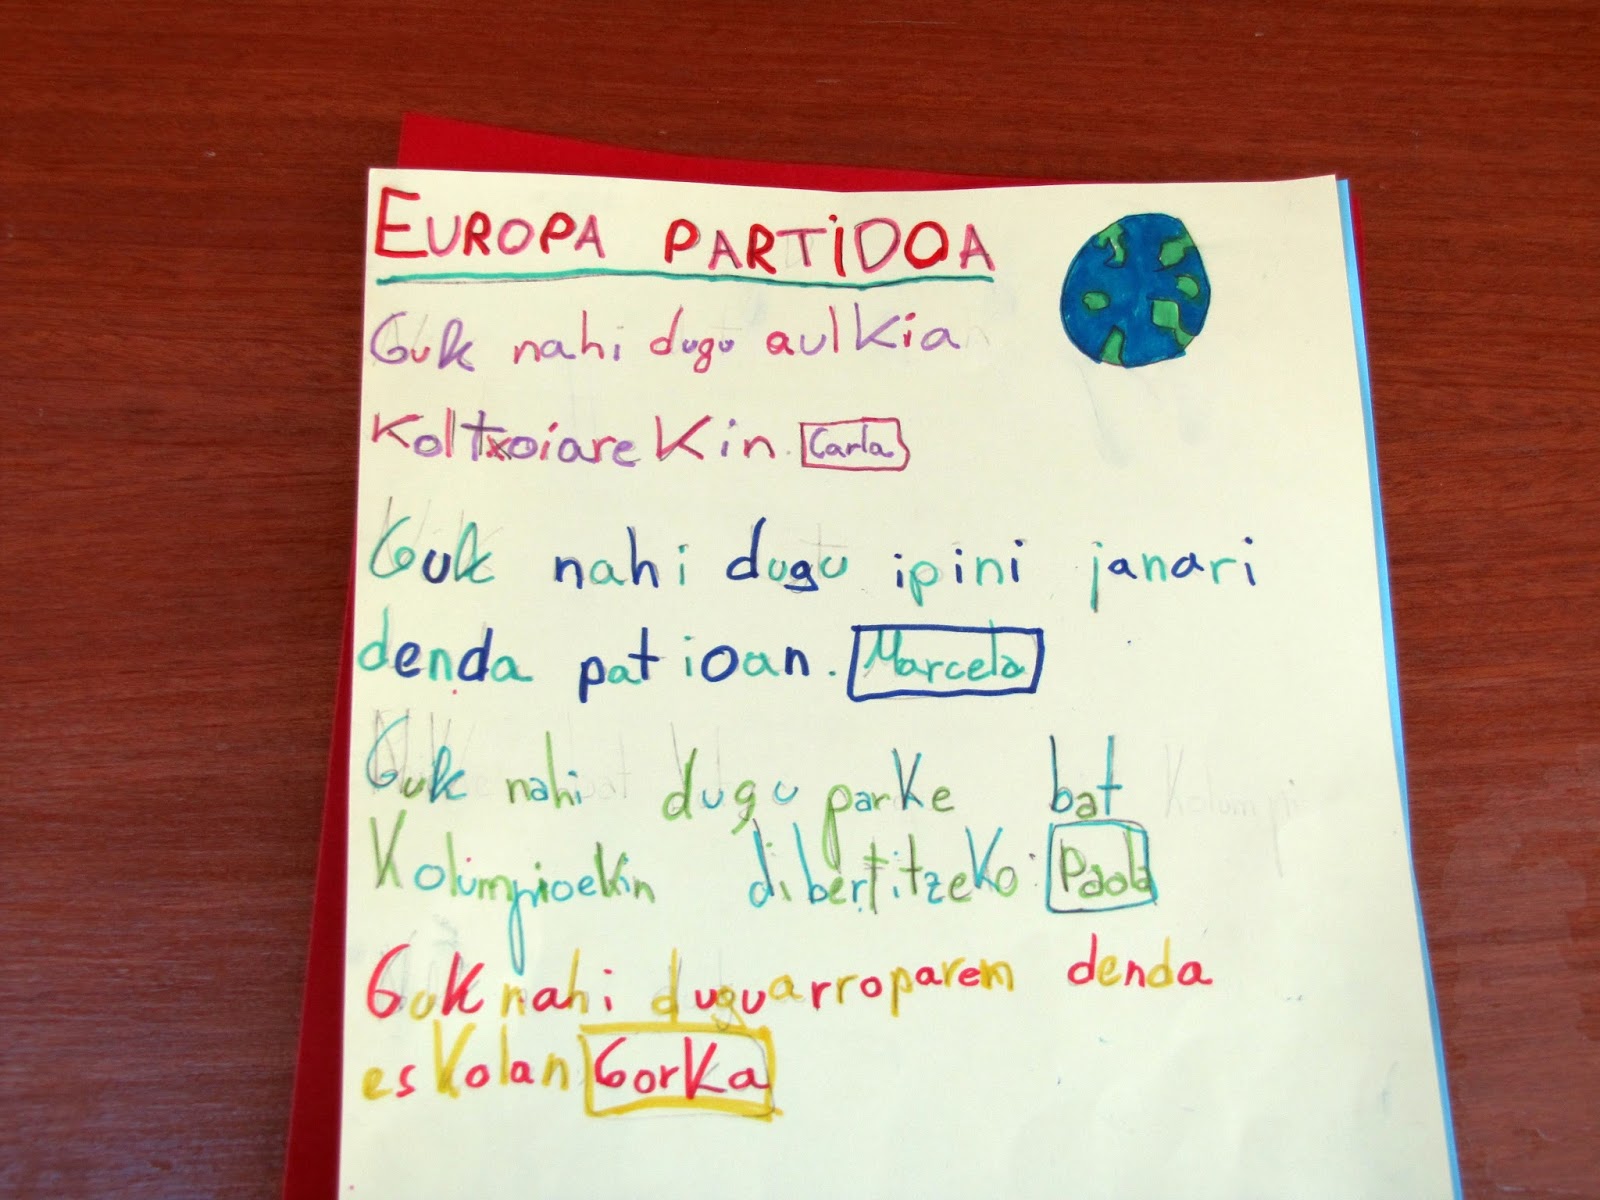 EUROPA PARTiDOA
Guk nahi dugu aulkia
Koltxoiarekin. Carla
Guk nahi dugu ipini janari
denda patioan. Marcela
Guk nahi dugu parke bat
Kolumpioekin dibertitzeko. Paola
Guk nahi dugu arroparem denda
eskolan Gorka